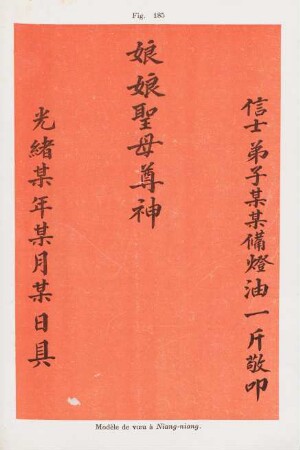 Fig. 185
信士弟子某某備燈油一斤敬叩
娘娘聖母尊神
光緒某年某月某日具
Modèle de vœu à Niang-niang.